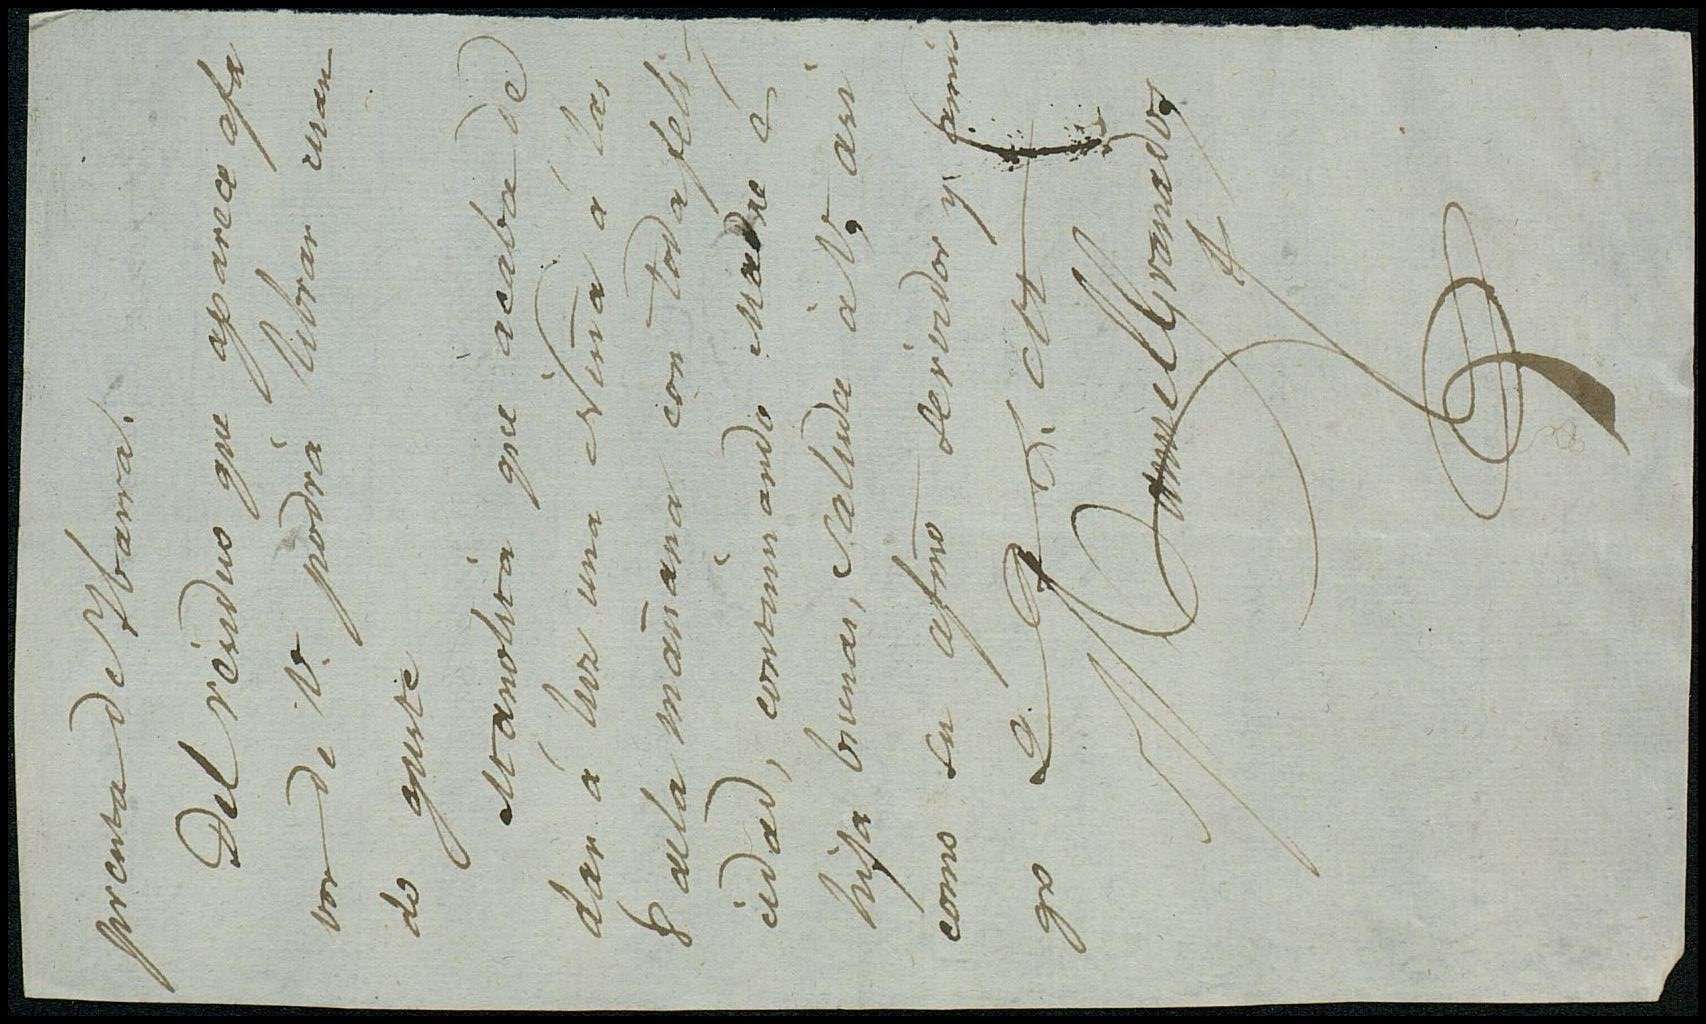 prenta de Ybarra.
Del residuo que aparece afa
vor de V. podrá librar cuan
do guste
Manolita que acaba de
dar á luz una Niña á las
8 de la mañana con toda feli-
cidad, continuando Madre é
hija buenas, saluda á V, asi
como su afmo servidor y ami
go Q. B. S. M.
Manuel Granados